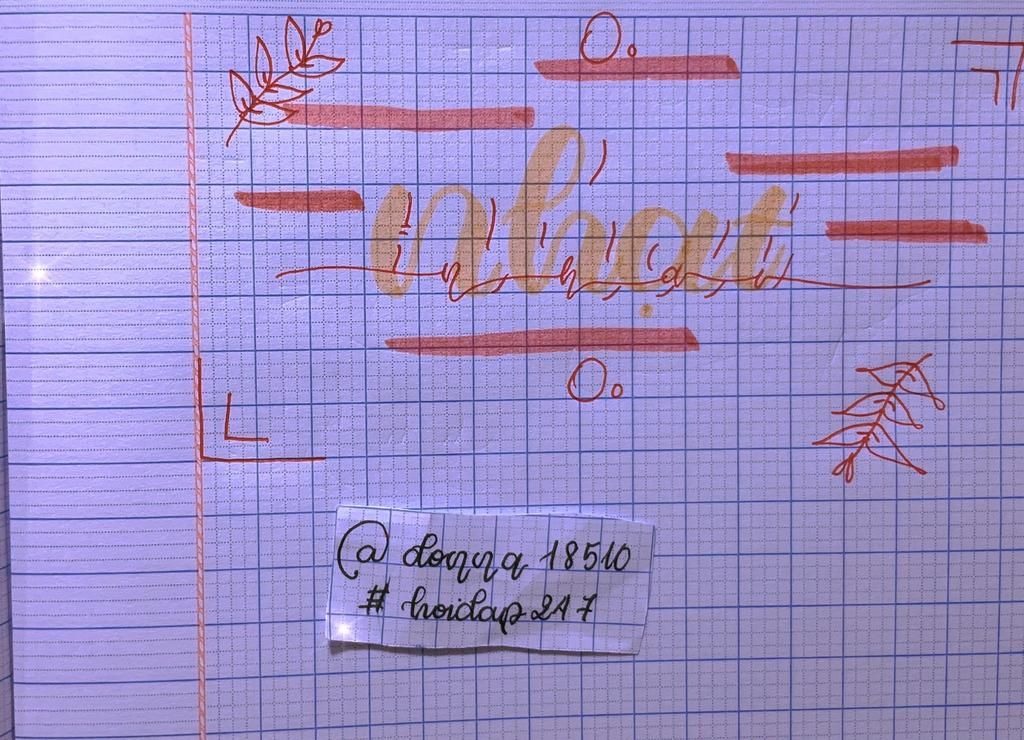 nhạt
@ donna 18510
# hoidap 247